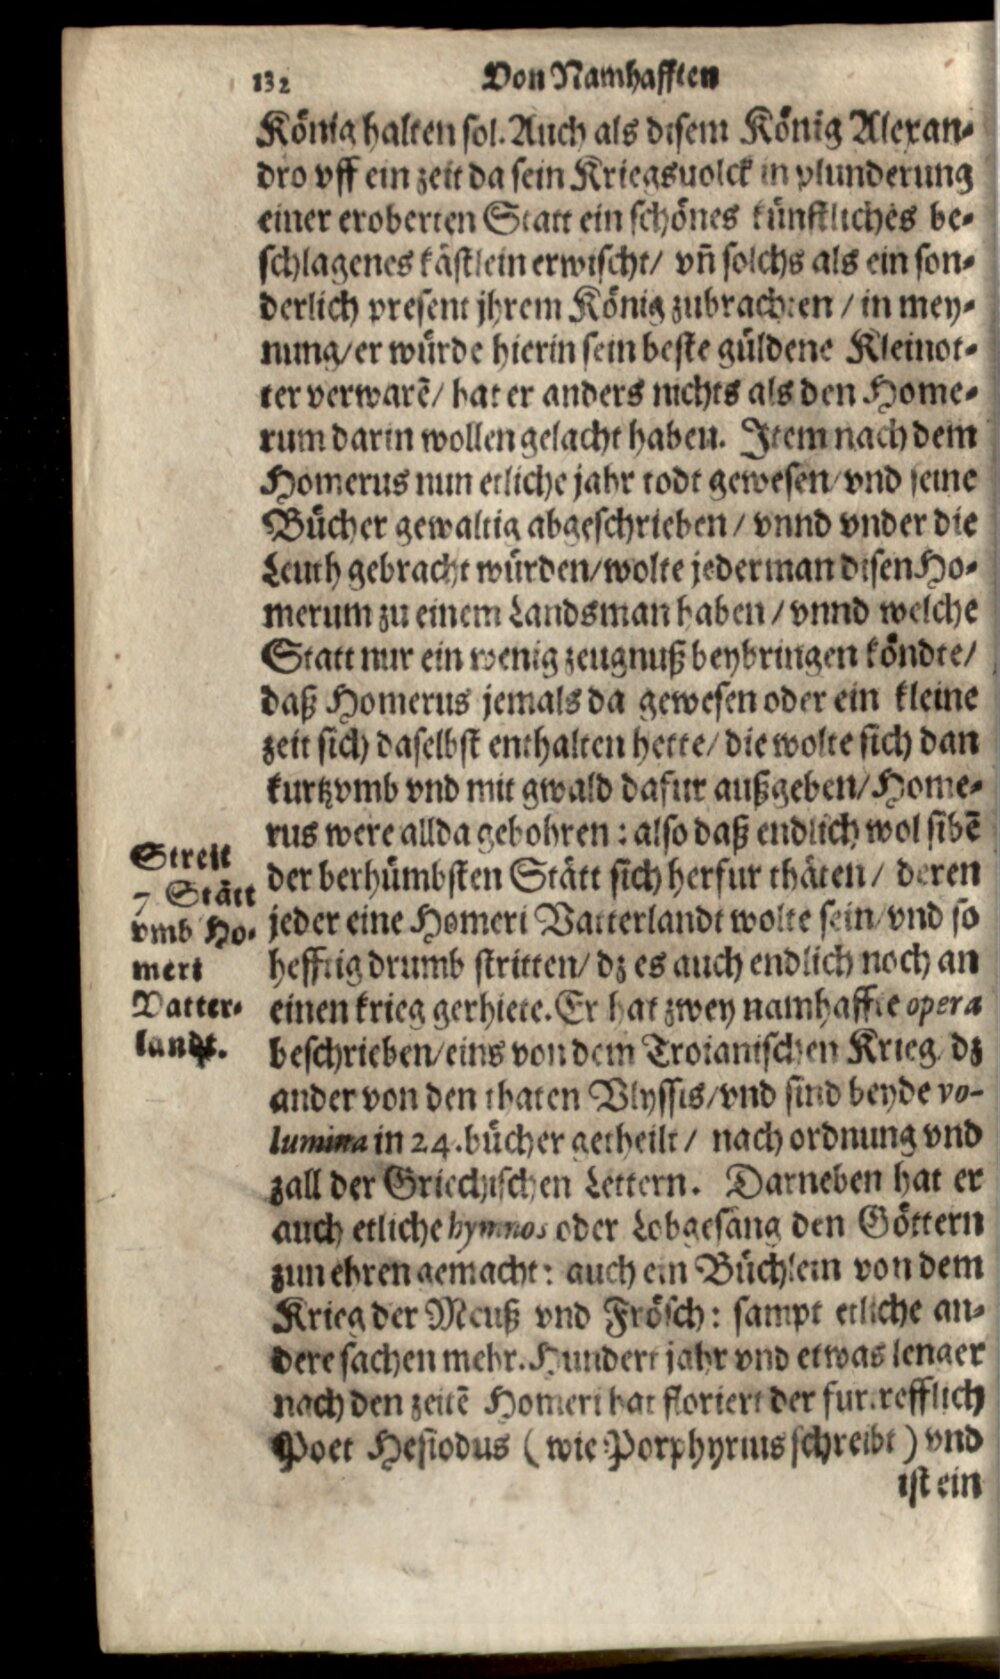 132 Von Namhafften
König halten sol. Auch als disem König Alexan-
dro vff ein zeit da sein Kriegsuolck in plunderung
einer eroberten Statt ein schönes künstliches be-
schlagenes kästlein erwischt/ vñ solchs als ein son-
derlich present jhrem König zubrachten / in mey-
nung/ er würde hierin sein beste güldene Kleinot-
ter verwarẽ/ hat er anders nichts als den Home-
rum darin wollen gelacht haben. Item nach dem
Homerus nun etliche jahr todt gewesen/ vnd seine
Bücher gewaltig abgeschrieben / vnnd vnder die
Leuth gebracht würden/ wolte jederman disen Ho-
merum zu einem Landsman haben / vnnd welche
Statt nur ein wenig zeugnuß beybringen köndte/
daß Homerus jemals da gewesen oder ein kleine
zeit sich daselbst enthalten hette/ die wolte sich dan
kurtzvmb vnd mit gwald dafur außgeben/ Home-
rus were allda gebohren: also daß endlich wol sibẽ
der berhümbsten Stätt sich herfur thäten / deren
jeder eine Homeri Vatterlandt wolte sein/ vnd so
hefftig drumb stritten/ dz es auch endlich noch an
einen krieg gerhiete. Er hat zwey namhaffte opera
beschrieben/ eins von dem Troianischen Krieg/ dz
ander von den thaten Vlyssis/ vnd sind beyde vo-
lumina in 24. bücher getheilt / nach ordnung vnd
zall der Griechischen Lettern. Darneben hat er
auch etliche hymnos oder Lobgesäng den Göttern
zun ehren gemacht: auch ein Büchlein von dem
Krieg der Meuß vnd Frösch: sampt etliche an-
dere sachen mehr. Hundert jahr vnd etwas lenger
nach den zeitẽ Homeri hat floriert der furtrefflich
Poet Hesiodus (wie Porphyrius schreibt) vnd
ist ein
Streit
7 Stätt
vmb Ho-
meri
Vatter-
landt.